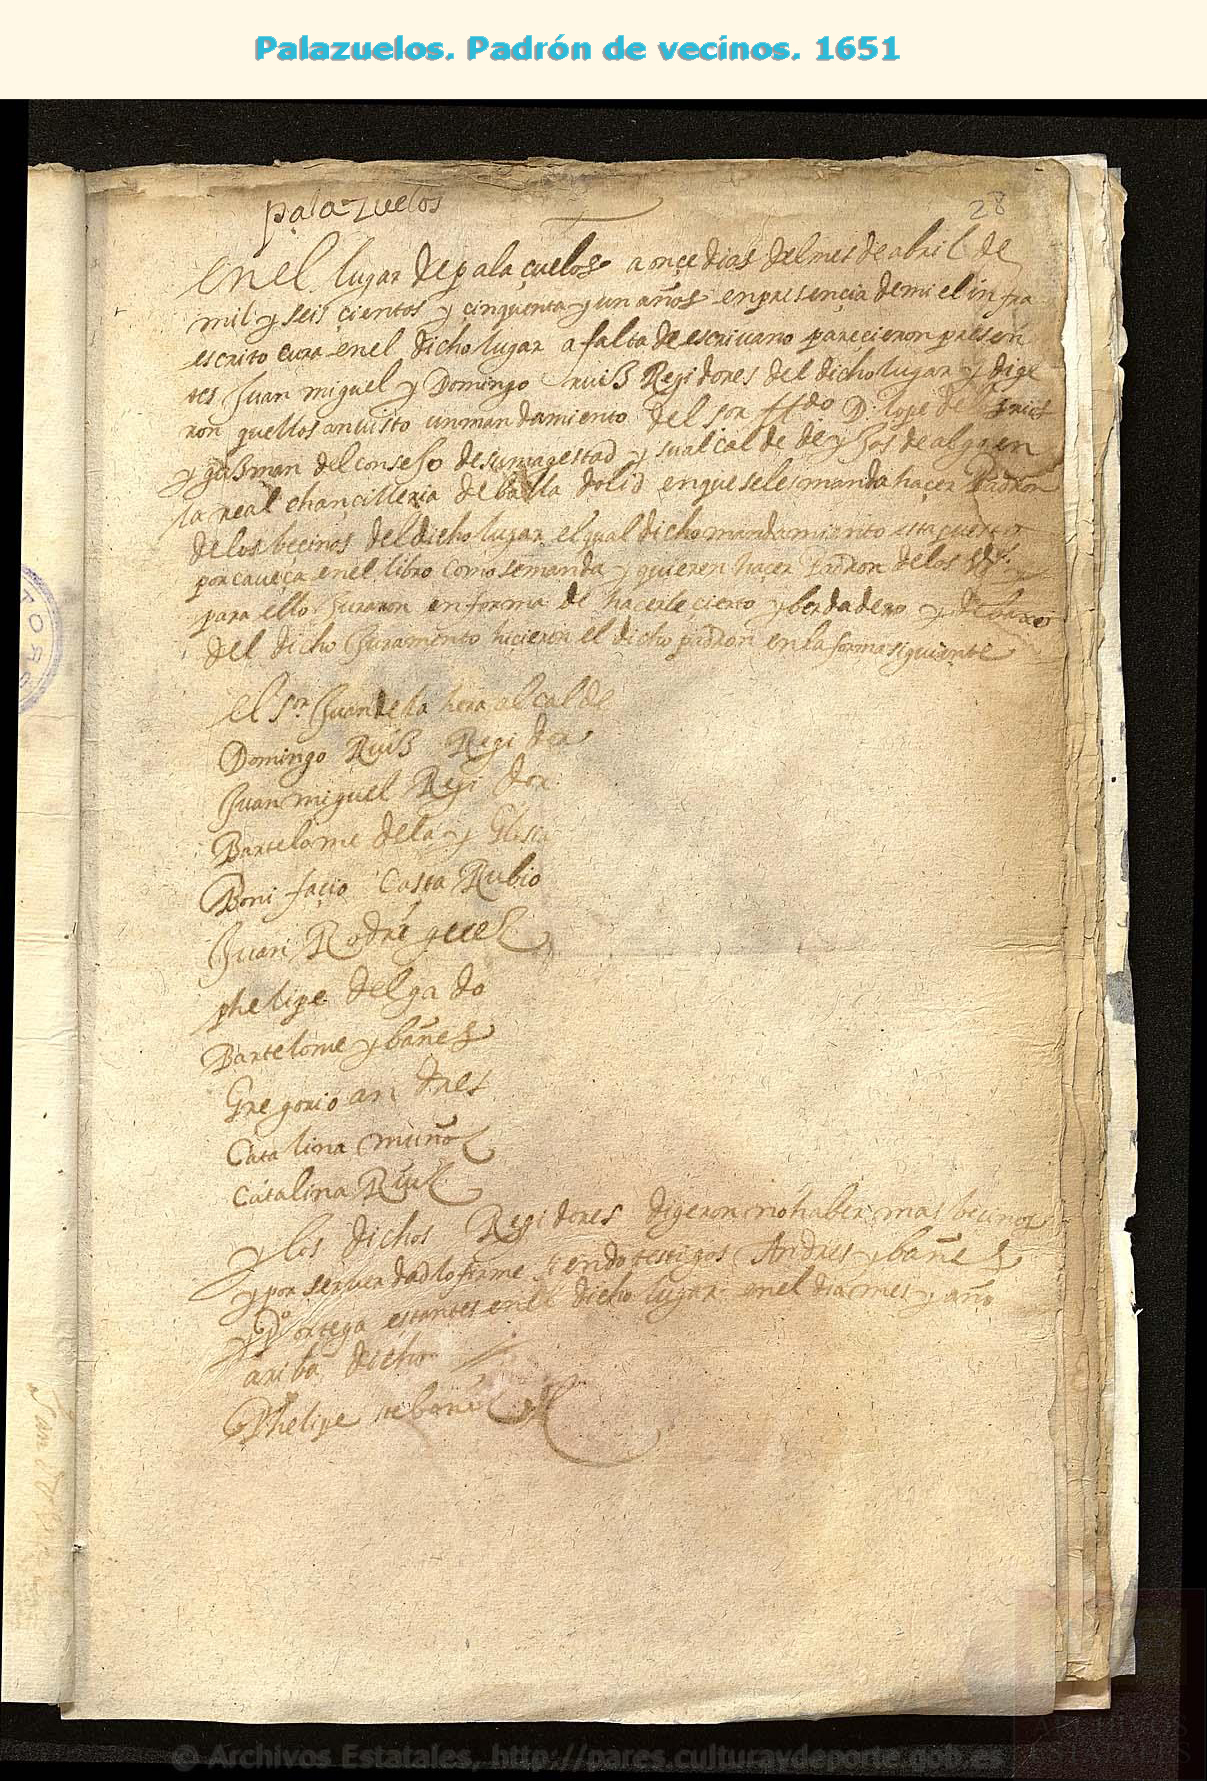 Palazuelos. Padrón de vecinos. 1651
palazuelos
28
en el lugar de pala çuelos a onçe dias del mes de abril de
mil y seis çientos y cinquenta y un años en presençia de mi el infra
escrito cura en el dicho lugar a falta de escriuano pareçieron presen
tes Juan miguel y Domingo ruiß Regidores del dicho lugar y dige
ron que ellos an uisto un mandamiento del sor D. lope de
y gußman del consejo de su magestad y su alcalde de yjos de algo en
la real chançilleria de balla dolid en que se les manda haçer Padron
de los beçinos del dicho lugar el qual dicho mandamiento esta puesto
por caueça en el libro como se manda y quieren haçer Padron de los
para ello Juraron en forma de hacerle cierto y berdadero y debaxo
del dicho Juramento hiçieron el dicho padron en la forma siguiente
el sr Juan de la hera alcalde
Domingo Ruiß Regidor
Juan miguel Regidor
Bartolome de la yglesia
Boni façio Casta Rubio
Juan Rodriguez
phelipe delgado
Bartolome ybañez
Gregorio andres
Catalina muñoz
Catalina Ruiz
y los dichos Regidores digeron no haber mas beçinos
y por ser uerdad lo firme siendo testigos Andres ybañez
y Po ortega estantes en el dicho lugar en el dia mes y año
ariba dicho
Phelipe ybañez
© Archivos Estatales, http://pares.culturaydeporte.gob.es
ARCHIVOS
ESTATALES